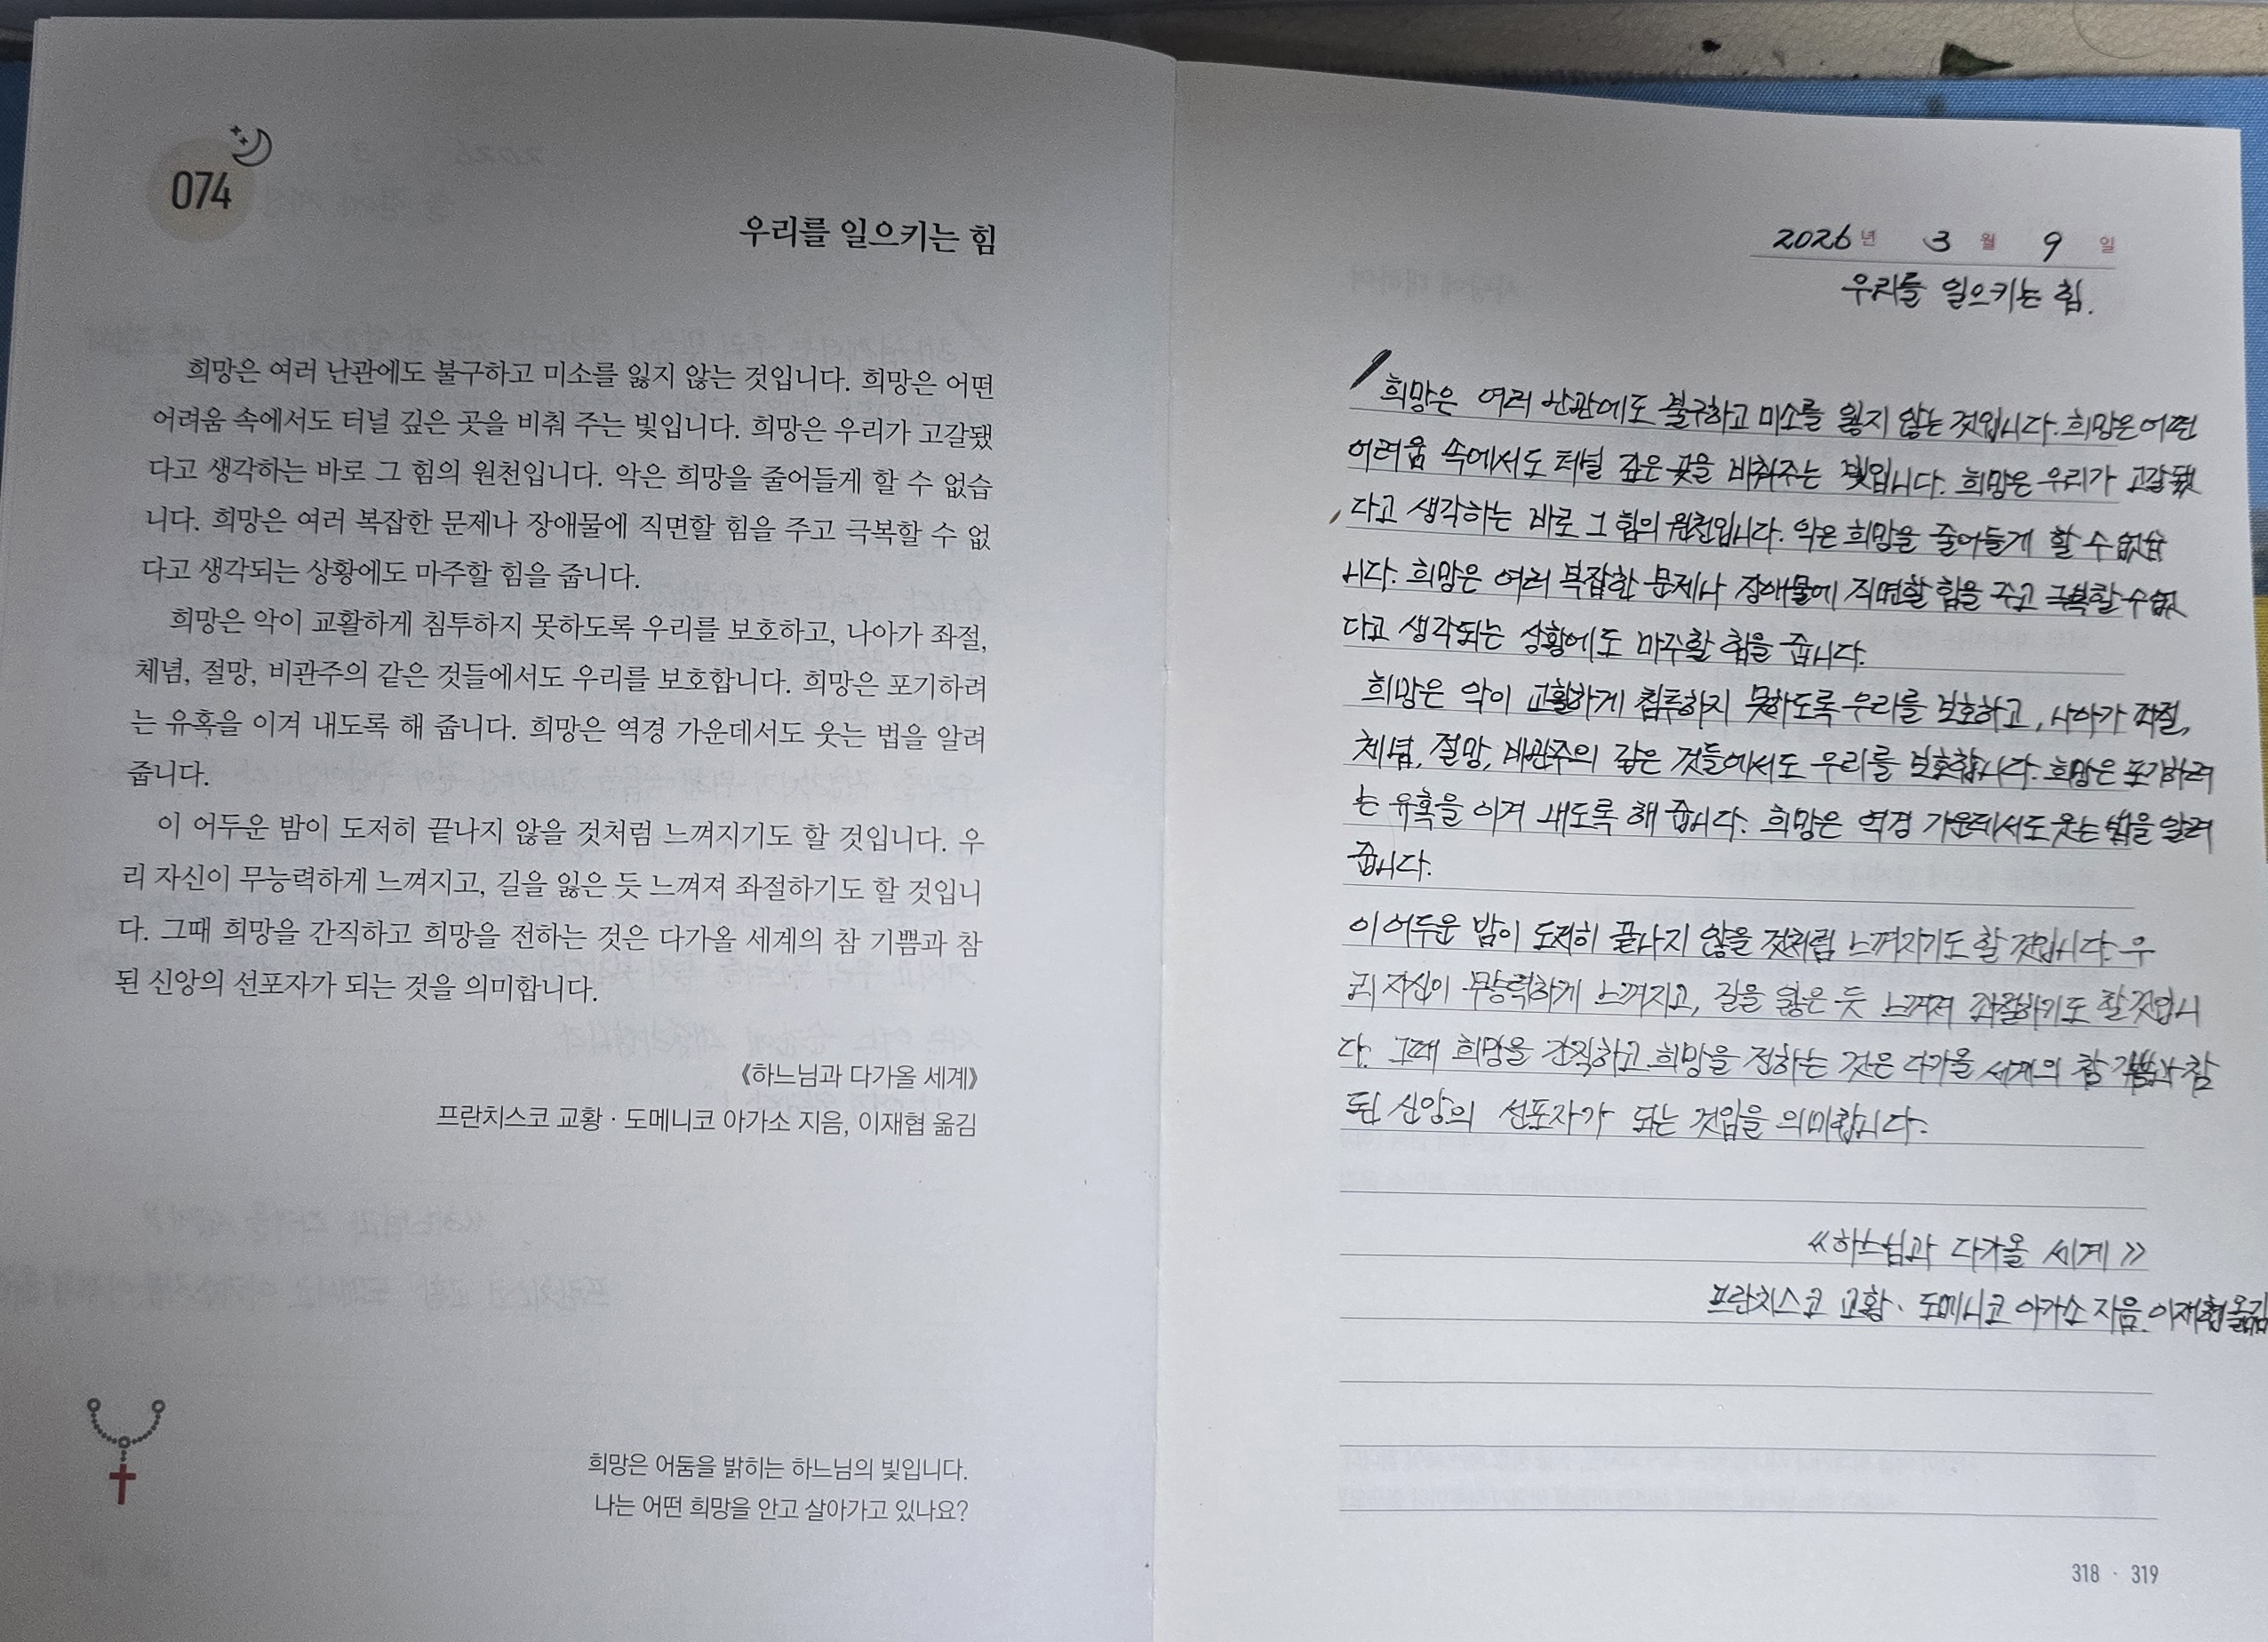 074
우리를 일으키는 힘
희망은 여러 난관에도 불구하고 미소를 잃지 않는 것입니다. 희망은 어떤
어려움 속에서도 터널 깊은 곳을 비춰 주는 빛입니다. 희망은 우리가 고갈됐
다고 생각하는 바로 그 힘의 원천입니다. 악은 희망을 줄어들게 할 수 없습
니다. 희망은 여러 복잡한 문제나 장애물에 직면할 힘을 주고 극복할 수 없
다고 생각되는 상황에도 마주할 힘을 줍니다.
희망은 악이 교활하게 침투하지 못하도록 우리를 보호하고, 나아가 좌절,
체념, 절망, 비관주의 같은 것들에서도 우리를 보호합니다. 희망은 포기하려
는 유혹을 이겨 내도록 해 줍니다. 희망은 역경 가운데서도 웃는 법을 알려
줍니다.
이 어두운 밤이 도저히 끝나지 않을 것처럼 느껴지기도 할 것입니다. 우
리 자신이 무능력하게 느껴지고, 길을 잃은 듯 느껴져 좌절하기도 할 것입니
다. 그때 희망을 간직하고 희망을 전하는 것은 다가올 세계의 참 기쁨과 참
된 신앙의 선포자가 되는 것을 의미합니다.
《하느님과 다가올 세계》
프란치스코 교황 · 도메니코 아가소 지음, 이재협 옮김
희망은 어둠을 밝히는 하느님의 빛입니다.
나는 어떤 희망을 안고 살아가고 있나요?
2026년 3월 9일
우리를 일으키는 힘.
희망은 여러 난관에도 불구하고 미소를 잃지 않는 것입니다. 희망은 어떤
어려움 속에서도 터널 깊은 곳을 비춰주는 빛입니다. 희망은 우리가 고갈됐
다고 생각하는 바로 그 힘의 원천입니다. 악은 희망을 줄어들게 할 수 없습
니다. 희망은 여러 복잡한 문제나 장애물에 직면할 힘을 주고 극복할 수 없
다고 생각되는 상황에도 마주할 힘을 줍니다.
희망은 악이 교활하게 침투하지 못하도록 우리를 보호하고, 나아가 좌절,
체념, 절망, 비관주의 같은 것들에서도 우리를 보호합니다. 희망은 포기하려
는 유혹을 이겨 내도록 해 줍니다. 희망은 역경 가운데서도 웃는 법을 알려
줍니다.
이 어두운 밤이 도저히 끝나지 않을 것처럼 느껴지기도 할 것입니다. 우
리 자신이 무능력하게 느껴지고, 길을 잃은 듯 느껴져 좌절하기도 할 것입니
다. 그때 희망을 간직하고 희망을 전하는 것은 다가올 세계의 참 기쁨과 참
된 신앙의 선포자가 되는 것임을 의미합니다.
《하느님과 다가올 세계》
프란치스코 교황 · 도메니코 아가소 지음. 이재협 옮김
318 · 319